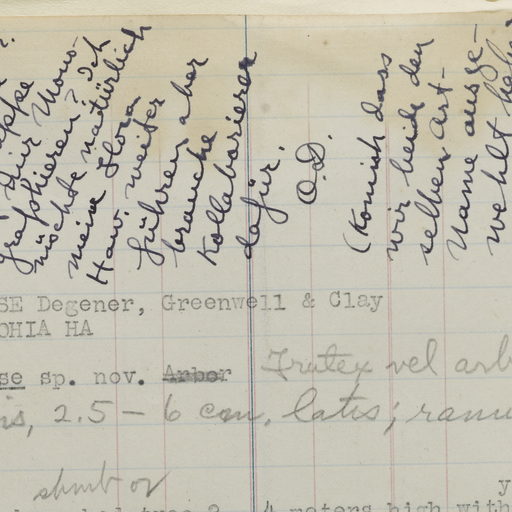 graphieren? Ich
möchte natürlich
meine Flora
Haw. weiter
führen aber
brauche
Kollabarierer
dafür.
O.D.
(Komish dass
wir beide den
selben Art-
Name ausge-
wehlt
SE Degener, Greenwell & Clay
OHIA HA
se sp. nov. Arbor Frutex vel arb
is, 2.5 – 6 cm. latis; ramu
shrub or
4 meters high with